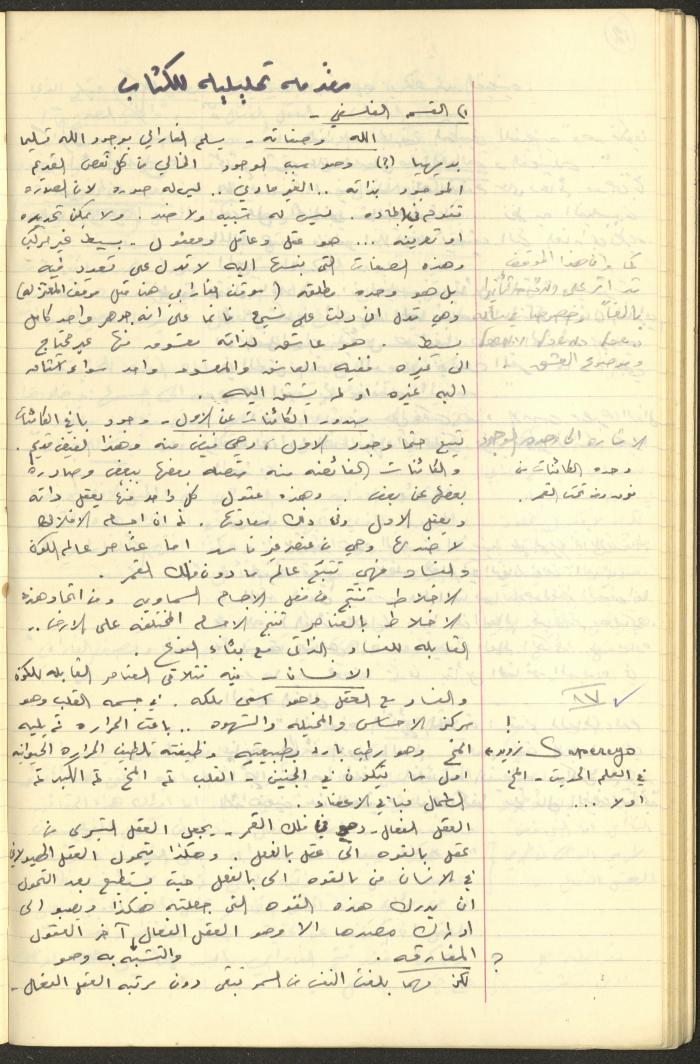 مقدمه تحليليه للكتاب
١) القسم الفلسفي -
الله وصفاته - يسلم الفارابي بوجود الله تسليما
بديهيا (؟) وهو سبب الوجود الخالي من كل نقص القديم
الموجود بذاته .. الغير مادي .. ليس له صوره لان الصوره
تتقوم في الماده . ليس له شبيه ولا ضد . ولا يمكن تحديده
او تعريفه ... هو عقل وعاقل ومعقول - بسيط غير مركب
وهذه الصفات التي ننسبها اليه لا تدل على تعدد فيه
بل هو وحده مطلقه ( موقف الفارابي هنا مثل موقف المعتزله )
وهي تدل ان دلت على شيئ فانما على انه جوهر واحد كامل
بسيط . هو عاشق لذاته معشوق منها غير محتاج
الى غيره ففيه العاشق والمعشوق واحد سواء اشتاق
اليه غيره او لم يشتق اليه .
صدور الكائنات عن الاول - وجود باقي الكائنات
يتبع حتما وجود الاول ، وهي فيض منه وهذا الفيض قديم .
والكائنات الفائضه منه متصله بعضها ببعض وصادرة
بعضها عن بعض . وهذه عقول كل واحد منها يعقل ذاته
ويعقل الاول وفي ذلك سعادتها . ثم ان اجسام الافلاك
لا ضد لها وهي من عنصر غير فاسد اما عناصر عالم الكون
والفساد فهي تنتج عالم ما دون فلك القمر .
الاخلاط تنتج من فعل الاجسام السماويه ومن اتحاد هذه
الاخلاط بالعناصر تنتج الاجسام المختلفه على الارض ..
القابله للفساد الذاتي مع بقاء النوع .
الانسان - فيه تتلاقى العناصر القابله للكون
والفساد مع العقل وهو اسمى ملكه . في جسمه القلب وهو
مركز الاحساس والمخيله والشهوه .. باعث الحراره ثم يليه
المخ وهو رطب بارد بطبيعته وظيفته تلطيف الحراره الحيوانيه
اول ما يتكون في الجنين - القلب ثم المخ ثم الكبد ثم
الطحال فباقي الاعضاء .
العقل الفعال - وهو في فلك القمر - يجعل العقل البشري من
عقل بالقوه الى عقل بالفعل . وهكذا يتحول العقل الهيولاني
في الانسان من بالقوه الى بالفعل حيث يستطيع بعد التحول
ان يدرك هذه القوه التي جعلته هكذا ويصبو الى
ادراك مصدرها الا وهو العقل الفعال آخر العقول
المفارقه . والتشبه به وهو
لكن مهما بلغت النفس من السمو تبقى دون مرتبه العقل الفعال -
كما وان هذا الموقف
وموضوع العشق
الاشاره الى وحده الوجود
وحده الكائنات من
فوق ومن تحت القمر .
١٧ ✓
!
Superego فرويد
في العلم الحديث - المخ
اولا ...
؟